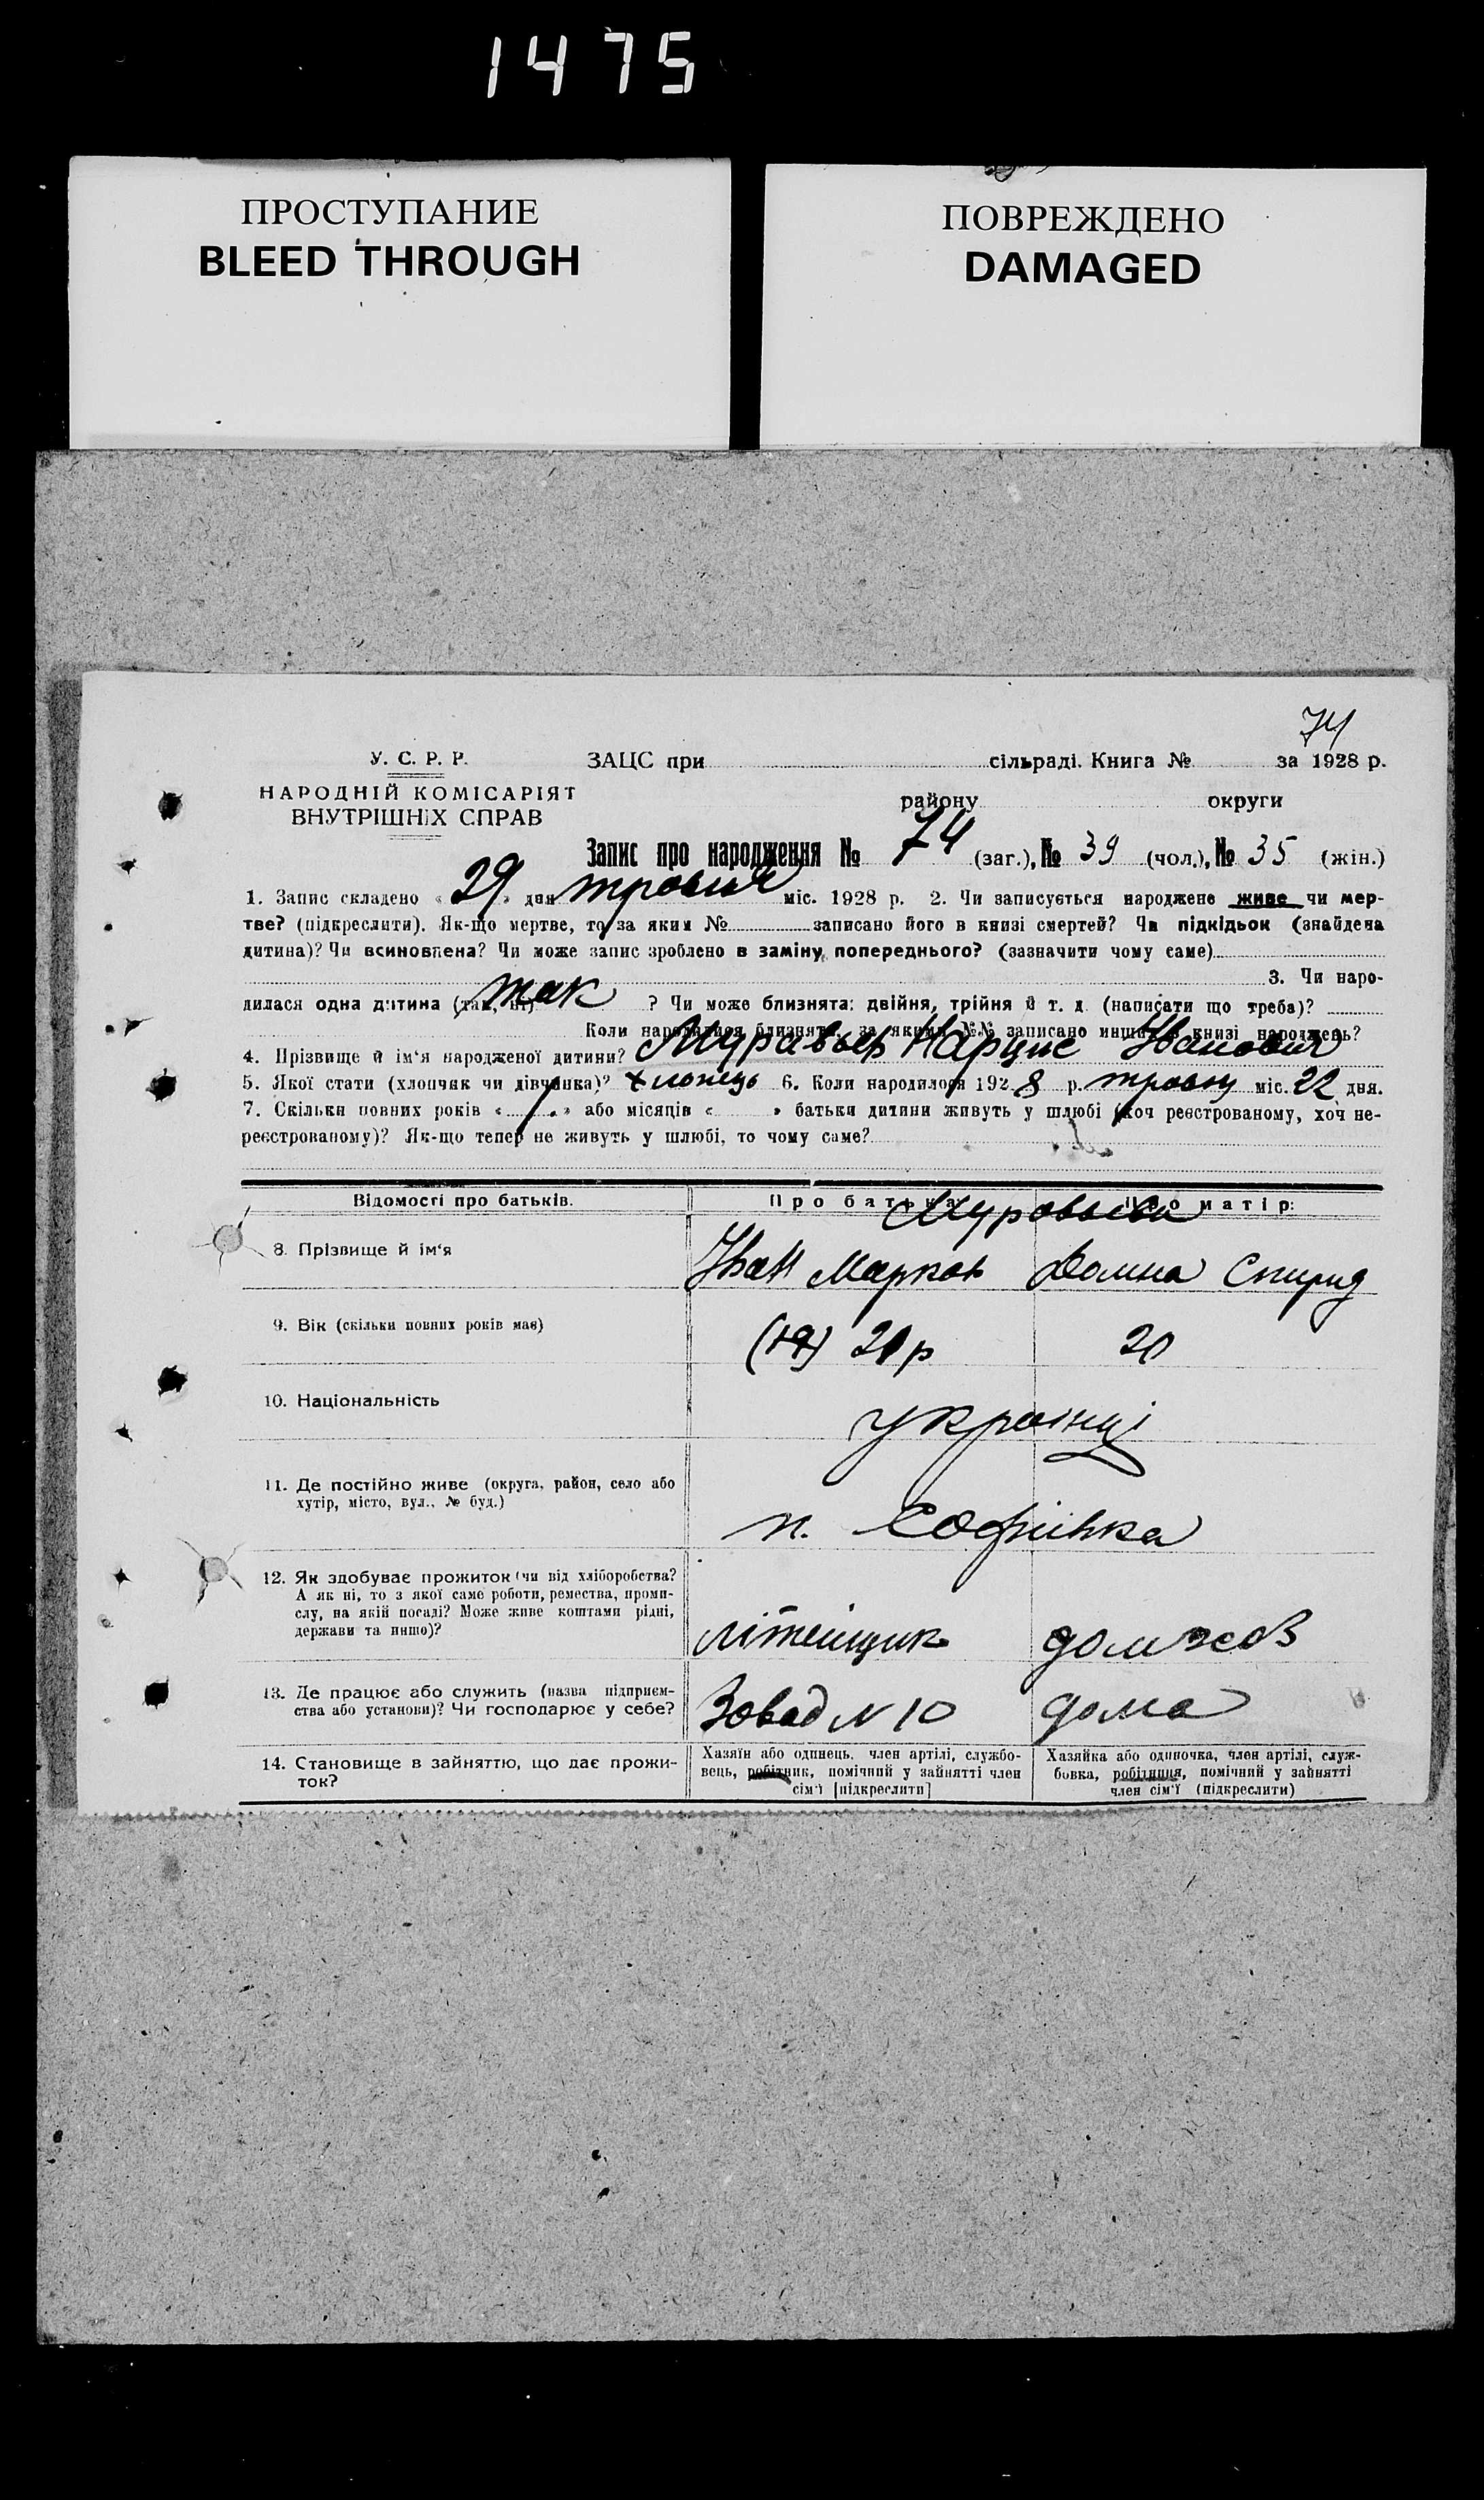 1475
ПРОСТУПАНИЕ
BLEED THROUGH
ПОВРЕЖДЕНО
DAMAGED
74
У. С. Р. Р. ЗАЦС при сільраді. Книга № за 1928 р.
НАРОДНІЙ КОМІСАРІЯТ
ВНУТРІШНІХ СПРАВ
району округи
Запис про народження № 74 (заг.), № 39 (чол.), № 35 (жін.)
1. Запис складено « 29 » дня травня міс. 1928 р. 2. Чи записується народжене живе чи мер-
тве? (підкреслити). Як-що мертве, то за яким № записано його в книзі смертей? Чи підкідьок (знайдена
дитина)? Чи всиновлена? Чи може запис зроблено в заміну попереднього? (зазначити чому саме)
3. Чи наро-
дилася одна дитина (так, ні) так ? Чи може близнята: двійня, трійня й т. д. (написати що треба)?
Коли народилися близнята, за якими №№ записано инших в книзі народжень?
4. Прізвище й ім'я народженої дитини? Муравьев Нарцис Іванович
5. Якої стати (хлопчик чи дівчинка)? хлопець 6. Коли народилося 1928 р. травня міс. 22 дня.
7. Скільки повних років « 1 . » або місяців « » батьки дитини живуть у шлюбі (хоч реєстрованому, хоч не-
реєстрованому)? Як-що тепер не живуть у шлюбі, то чому саме?
Відомості про батьків. Про батька Про матір:
8. Прізвище й ім'я
Іван Марков Домна Спирид
9. Вік (скільки повних років має) (19) 21 р 20
10. Національність
українці
11. Де постійно живе (округа, район, село або
хутір, місто, вул., № буд.)
п. Софиівка
12. Як здобуває прожиток (чи від хліборобства?
А як ні, то з якої саме роботи, ремества, проми-
слу, на якій посаді? Може живе коштами рідні,
держави та иншо)?
літейщик домхоз
13. Де працює або служить (назва підприєм-
ства або установи)? Чи господарює у себе?
Завод N 10 дома
14. Становище в зайняттю, що дає прожи-
ток?
Хазяїн або одинець, член артілі, службо-
вець, робітник, помічний у зайнятті член
сім'ї [підкреслити]
Хазяйка або одиночка, член артілі, служ-
бовка, робітниця, помічний у зайнятті
член сім'ї (підкреслити)